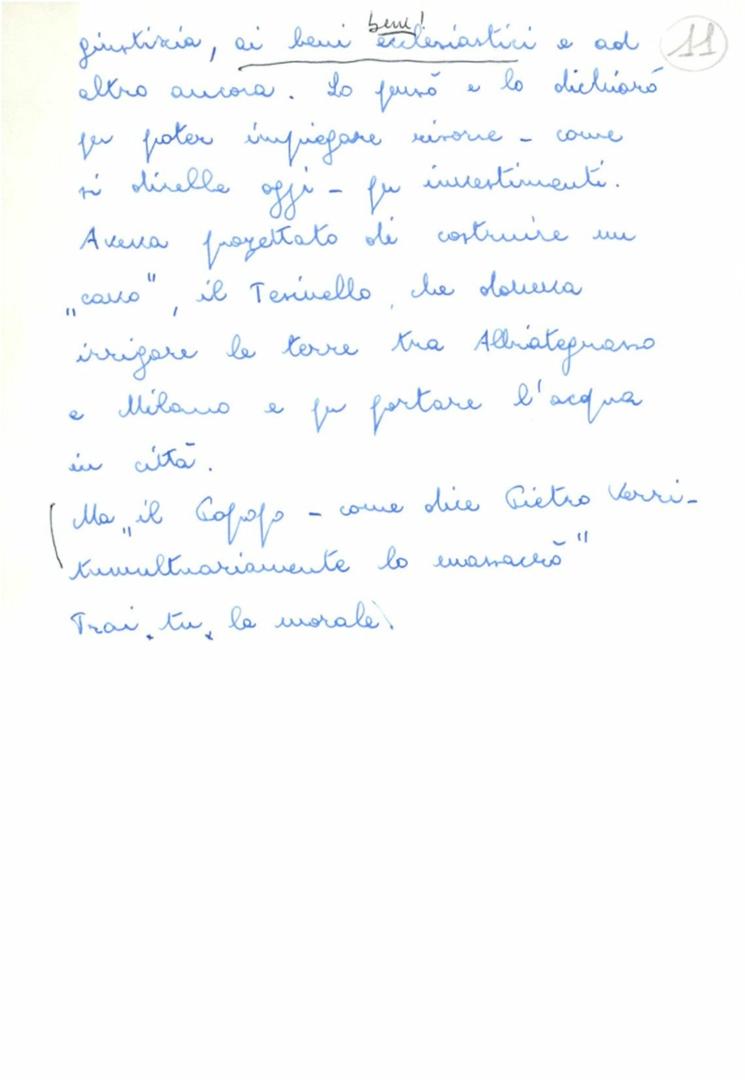 bene!
giustizia, ai beni ecclesiastici e ad 11
altro ancora. Lo pensò e lo dichiarò
per poter impiegare risorse - come
si direbbe oggi - per investimenti.
Aveva progettato di costruire un
"cavo", il Tesinello, che doveva
irrigare le terre tra Abbiategrasso
e Milano e per portare l'acqua
in città.
Ma "il Popolo - come dice Pietro Verri -
tumultuariamente lo massacrò"
Trai, tu, la morale.